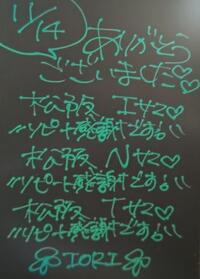 11/14
ありがとう
ございました♡♡
松阪 Iサマ♡
リピート感謝です!!
松阪 Nサマ♡
リピート感謝です!!
松阪 Tサマ♡
リピート感謝です!!
IORI